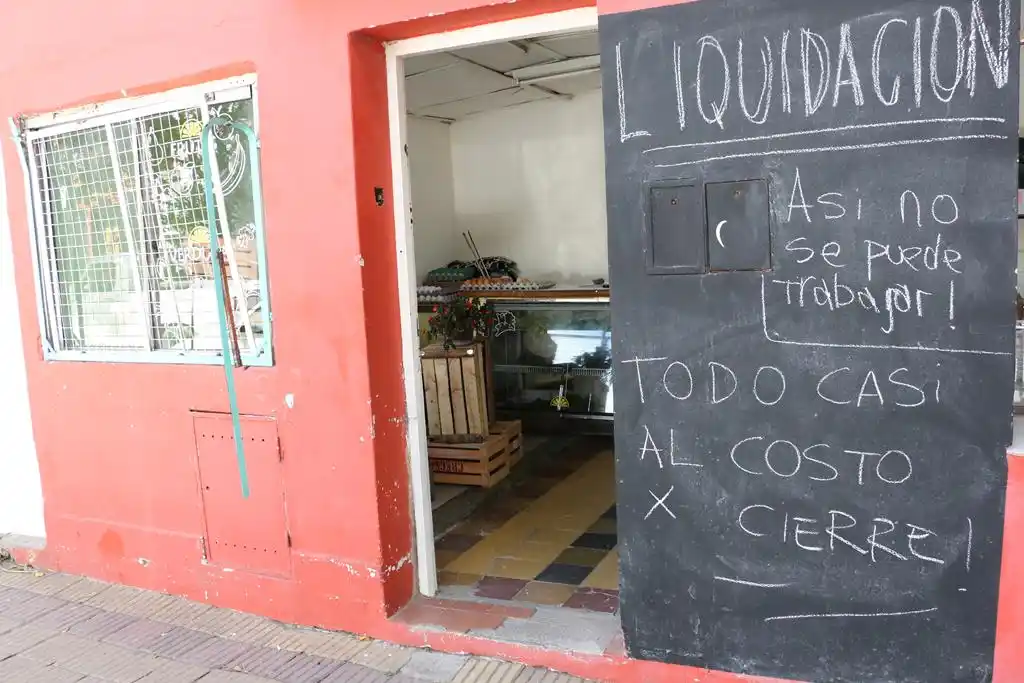 LIQUIDACION
Asi no
se puede
trabajar!
TODO CASi
AL COSTO
X CIERRE!